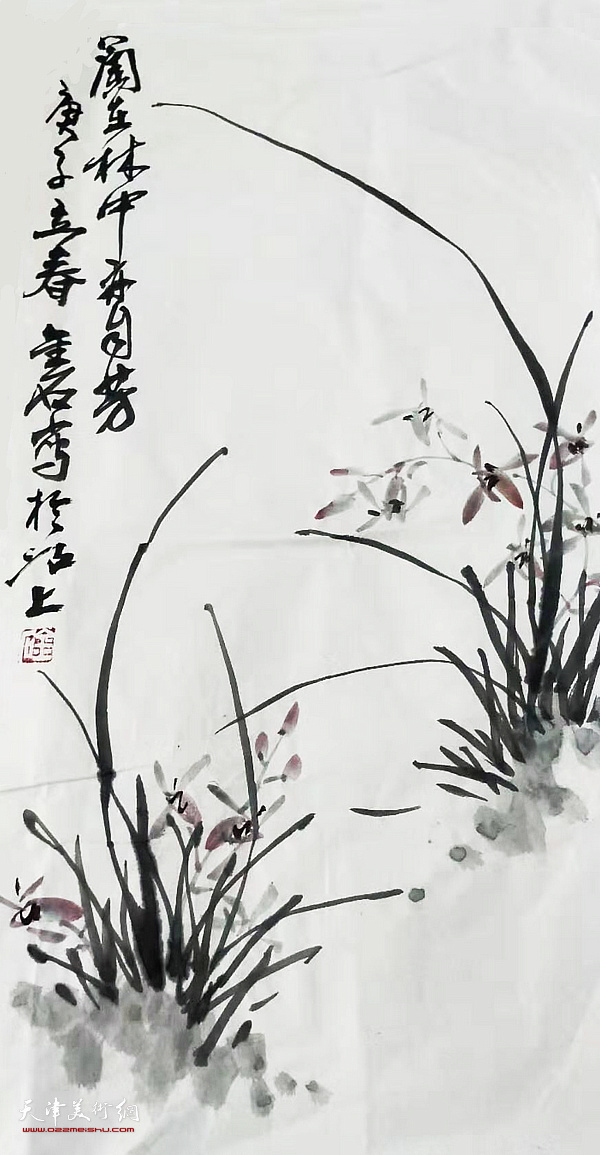 蘭在林中亦自芳
庚子立春金石寫於沽上
天津美術網
www.022meishu.com